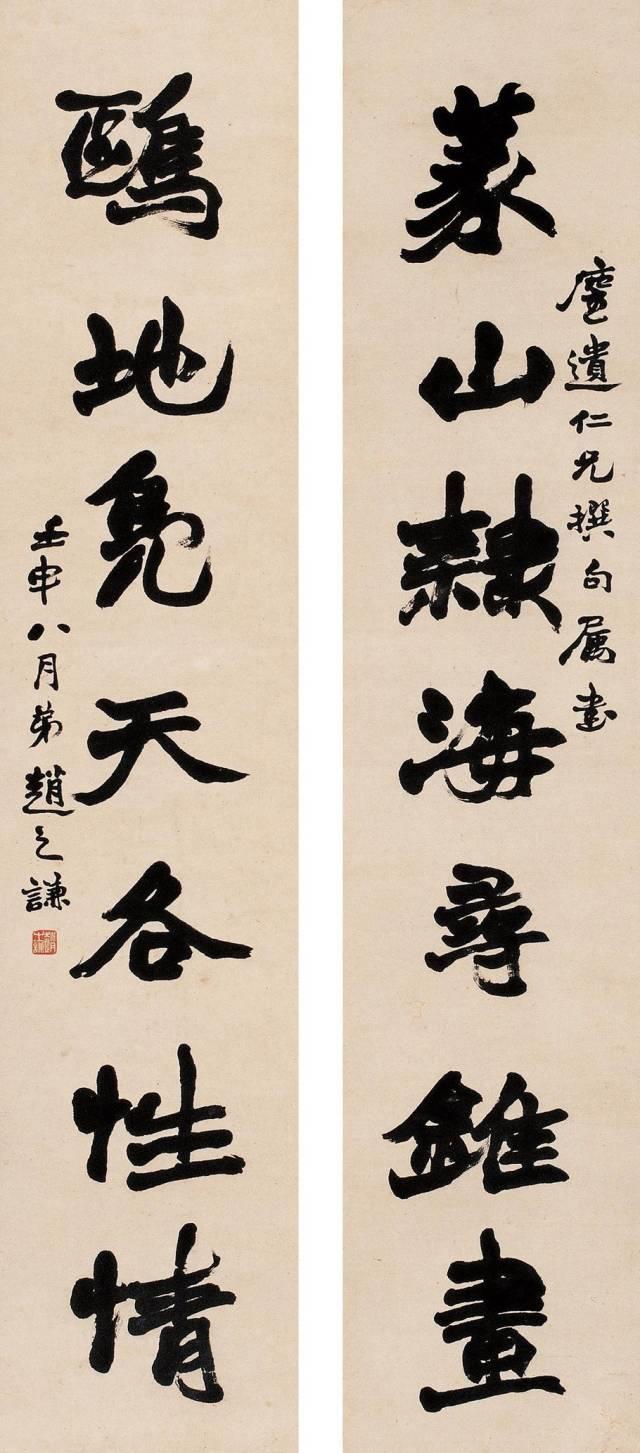 篆山隸海尋錐畫
塵遺仁兄撰句属書
鷗地鳧天各性情
壬申八月弟趙之謙